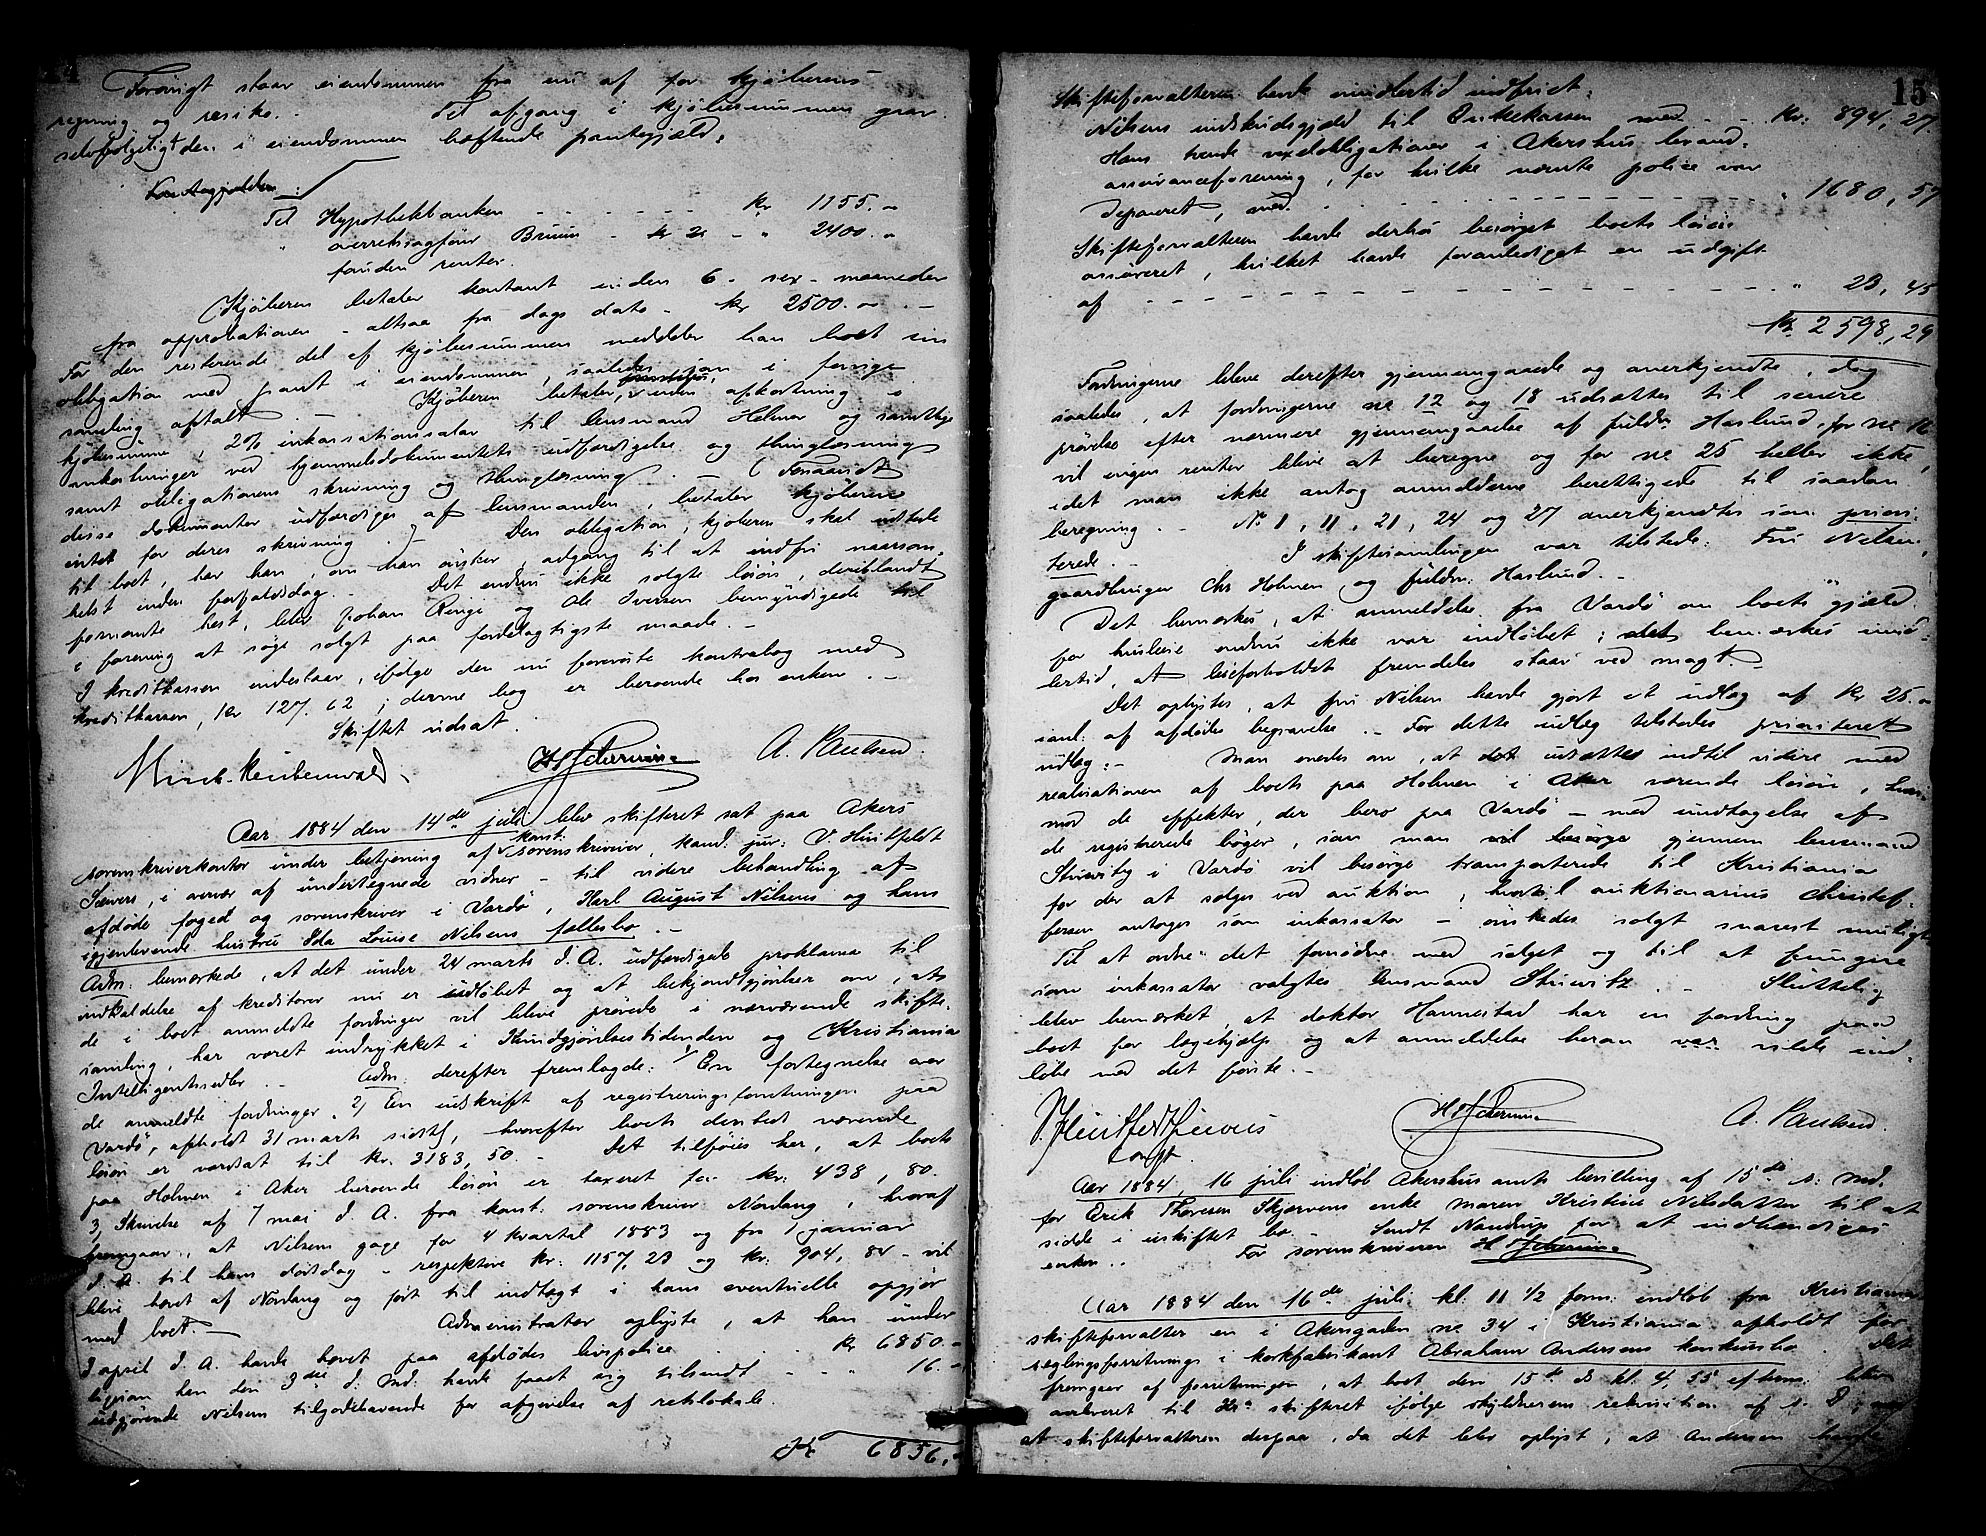 14
Forøvrigt staar eiendommen fra nu af for kjøberens
regning og resiko. - Til afgang i kjøbesummen graa
selvfølgeligt den i eiendommen heftende pantegjæld:
Til Hypothekbanken - - - - - - kr 1155. "
" overretssagfører Bruun - kr 2 - " 2400. "
foruden renter.
Kjøberen betaler kontant inden 6 - sex - maaneder
fra approbationen - altsaa fra dags dato - kr 2500. " -
For den resterende del af kjøbesummen meddeler han boet sin
obligation med pant i eiendommen, saaledes som i forrige
samling aftalt. - Kjøberen betaler, uden afkortning i
kjøbesummen, 2% inkassationssalær til lensmand Holmer og samtlige
omkostninger ved hjemmelsdokumentets udfærdigelse og thinglæsning
samt obligationens skrivning og thinglæsning. - (Forsaavidt
disse dokumenter udfærdiges af lensmanden, betaler kjøberen
intet for deres skrivning.) - Den obligation, kjøberen skal udstede
til boet, har han, om han ønsker, adgang til at indfri naarsom-
helst inden forfaldsdag. - Det endnu ikke solgte løsøre, deriblandt
fornævnte hest, blev Johan Ringe og Ole Iversen bemyndigede til
i forening at søge solgt paa fordelagtigste maade. -
I kreditkassen indestaar, ifølge den nu foreviste kontrabog med
kreditkassen, kr 127.62; denne bog er beroende hos enken. -
Skiftet udsat.
A. Paulsen.
Aar 1884 den 14de juli blev skifteret sat paa Akers
sorenskriverkontor under betjening af konst. sorenskriver, kand. jur. V. Huitfeldt
Sievers, i overvær af undertegnede vidner - til videre behandling af
afdøde foged og sorenskriver i Vardø, Karl August Nilsens og hans
igjenlevende hustru Ida Louise Nilsens fællesbo. -
Adm: bemærkede, at det under 24 marts d. A. udfærdigede proklama til
indkaldelse af kreditorer nu er udløbet og at bekjendtgjørelser om, at
de i boet anmeldte fordringer vil blive prøvede i nærværende skifte-
samling, har været indrykket i Kundgjørelsestidenden og Kristiania
Intelligentssedler. - Adm: derefter fremlagde: 1) En fortegnelse over
de anmeldte fordringer. 2) En udskrift af registreringsforretningen paa
Vardø, afholdt 31 marts sidstl, hvorefter boets dersteds værende
løsøre er værdsat til kr. 3183,50. - Det tilføies her, at boets
paa Holmen i Aker beroende løsøre er taxeret for kr. 438,80.
3, Skrivelse af 7 mai d. A. fra konst. sorenskriver Nordang, hvoraf
fremgaar, at Nilsens gage for 4 kvartal 1883 og fra 1 januar
d. A. til hans dødsdag - respektive kr. 1157,23 og kr. 904,84 - vil
blive hævet af Nordang og ført til indtægt i hans eventuelle opgjør
med boet. - Administrator oplyste, at han under
I april d. A. havde hævet paa afdødes livspolice . . . kr 6850. -
ligesom han den 9de d. Md. havde faaet sig tilsendt - - " 16. -
udgjørende Nilsens tilgodehavende for afgivelse af retslokale.
kr 6856. -
15
Skifteforvalteren havde imidlertid indfriet:
Nilsens indskudsgjæld til Enkekassen med - - kr. 894,27.
Hans tvende vexelobligationer i Akershus brand-
assuranceforening, for hvilke nævnte police var
deponeret, med. - - - - - - - - " 1680,57
Skifteforvalteren havde derhos besørget boets løsøre
assureret, hvilket havde foranlediget en udgift
af - - - - - - - - - - - " 23,45
kr 2598,29
Fordringerne bleve derefter gjennemgaaede og anerkjendte, dog
saaledes, at fordringerne no 12 og 18 udsættes til senere
prøvelse efter nærmere gjennemgaaelse af fuldm. Haslund, for no 16
vil ingen renter blive at beregne og for no 25 heller ikke,
idet man ikke antog anmelderne berettigede til saadan
beregning. - No 1, 11, 21, 24 og 27 anerkjendtes som priori-
terede. - I skiftesamlingen var tilstede: Fru Nilsen,
gaardbruger Chr Holmen og fuldm. Haslund. -
Det bemærkes, at anmeldelse fra Vardø om boets gjæld
for husleie endnu ikke var indløbet; det bemærkes imid-
lertid, at leieforholdet fremdeles staar ved magt. -
Det oplystes, at fru Nilsen havde gjort et udlæg af kr 25. "
i anl. af afdødes begravelse. - For dette udlæg tilstedes prioriteret
udlæg. - Man enedes om, at det udsættes indtil videre med
realisationen af boets paa Holmen i Aker værende løsøre,
med de effekter, der bero paa Vardø - med undtagelse af
de registrerede bøger, som man vil besørge gjennem lensmand
Stuwitz i Vardø vil besørge transporterede til Kristiania
for der at sælges ved auktion, hvortil auktionarius Christof-
fersen antages som inkassator - ønskedes solgt snarest muligt.
Til at ordne det fornødne med salget og til at fungere
som inkassator valgtes lensmand Stuwitz. - Sluttelig
blev bemærket, at doktor Hannestad har en fordring paa
boet for lægehjælp og at anmeldelse herom var vilde ind-
løbe med det første. -
V. Huitfeldt Sievers
const.
A. Paulsen.
Aar 1884 16 juli indløb Akershus amts bevilling af 15de s. md.
for Erik Thoresen Skjervens enke Maren Kristine Nilsdatter til at
sidde i uskiftet bo. - Sendt Nandrup for at indhændiges
enken. . For sorenskriveren
Aar 1884 den 16de juli kl. 11 1/2 form. indløb fra Kristiania
skifteforvalter en i Akersgaden no 34 i Kristiania afholdt for-
seglingsforretning i korkfabrikant Abraham Andersens konkursbo. Det
fremgaar af forretningen, at boet den 15de ds kl. 4,55 efterm. blev
overleveret til Kra skifteret ifølge skyldnerens rekvisition af s. D,
at skifteforvalteren derpaa, da det blev oplyst, at Andersen havde